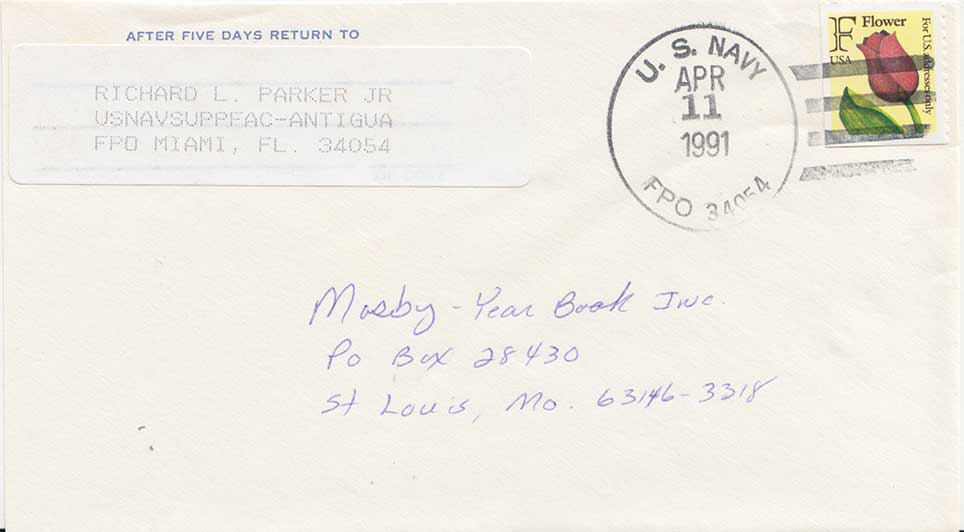 AFTER FIVE DAYS RETURN TO
RICHARD L. PARKER JR
USNAVSUPPFAC-ANTIGUA
FPO MIAMI, FL. 34054
U. S. NAVY
APR
11
1991
FPO 34054
F Flower
USA
For U.S. addresses only
Mosby - Year Book Inc.
Po Box 28430
St Louis, Mo. 63146-3318